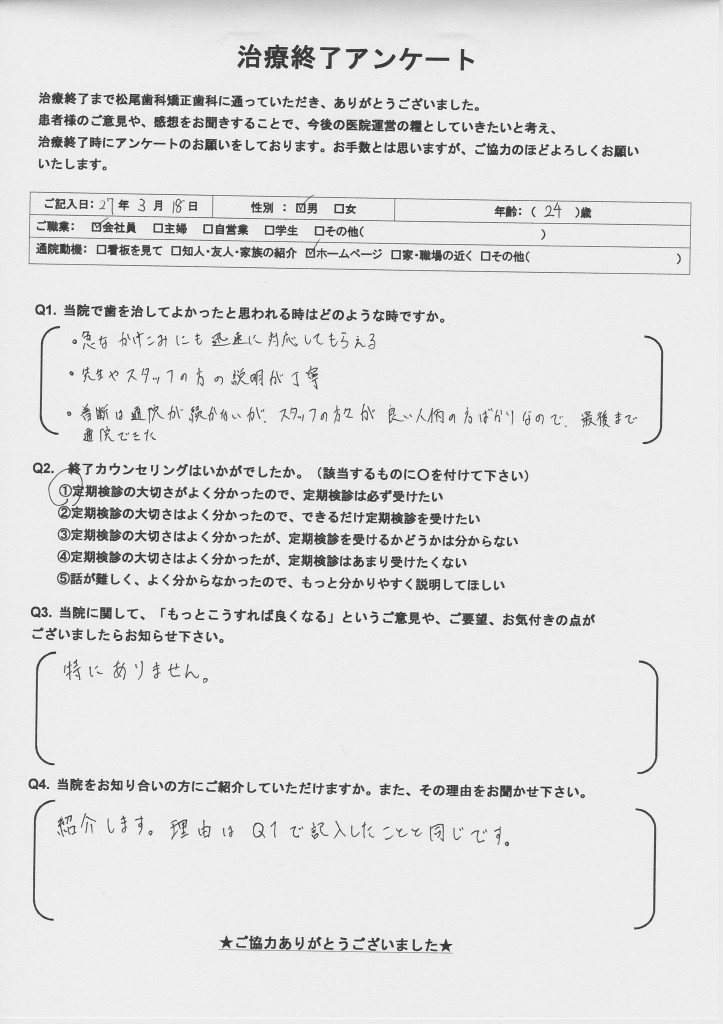 治療終了アンケート
治療終了まで松尾歯科矯正歯科に通っていただき、ありがとうございました。
患者様のご意見や、感想をお聞きすることで、今後の医院運営の糧としていきたいと考え、
治療終了時にアンケートのお願いをしております。お手数とは思いますが、ご協力のほどよろしくお願い
いたします。
ご記入日：27年 3月 18日 性別 ： ☑男 □女 年齢：（ 24 ）歳
ご職業： ☑会社員 □主婦 □自営業 □学生 □その他（ ）
通院動機：□看板を見て □知人・友人・家族の紹介 ☑ホームページ □家・職場の近く □その他（ ）
Q1. 当院で歯を治してよかったと思われる時はどのような時ですか。
・急な かけこみにも 迅速に対応してもらえる
・先生やスタッフの方の説明が丁寧
・普断は通院が続かないが、スタッフの方々が良い人柄の方ばかりなので、最後まで
通院できた
Q2. 終了カウンセリングはいかがでしたか。（該当するものに〇を付けて下さい）
①定期検診の大切さがよく分かったので、定期検診は必ず受けたい
②定期検診の大切さはよく分かったので、できるだけ定期検診を受けたい
③定期検診の大切さはよく分かったが、定期検診を受けるかどうかは分からない
④定期検診の大切さはよく分かったが、定期検診はあまり受けたくない
⑤話が難しく、よく分からなかったので、もっと分かりやすく説明してほしい
Q3. 当院に関して、「もっとこうすれば良くなる」というご意見や、ご要望、お気付きの点が
ございましたらお知らせ下さい。
特にありません。
Q4. 当院をお知り合いの方にご紹介していただけますか。また、その理由をお聞かせ下さい。
紹介します。理由は Q1で記入したことと同じです。
★ご協力ありがとうございました★